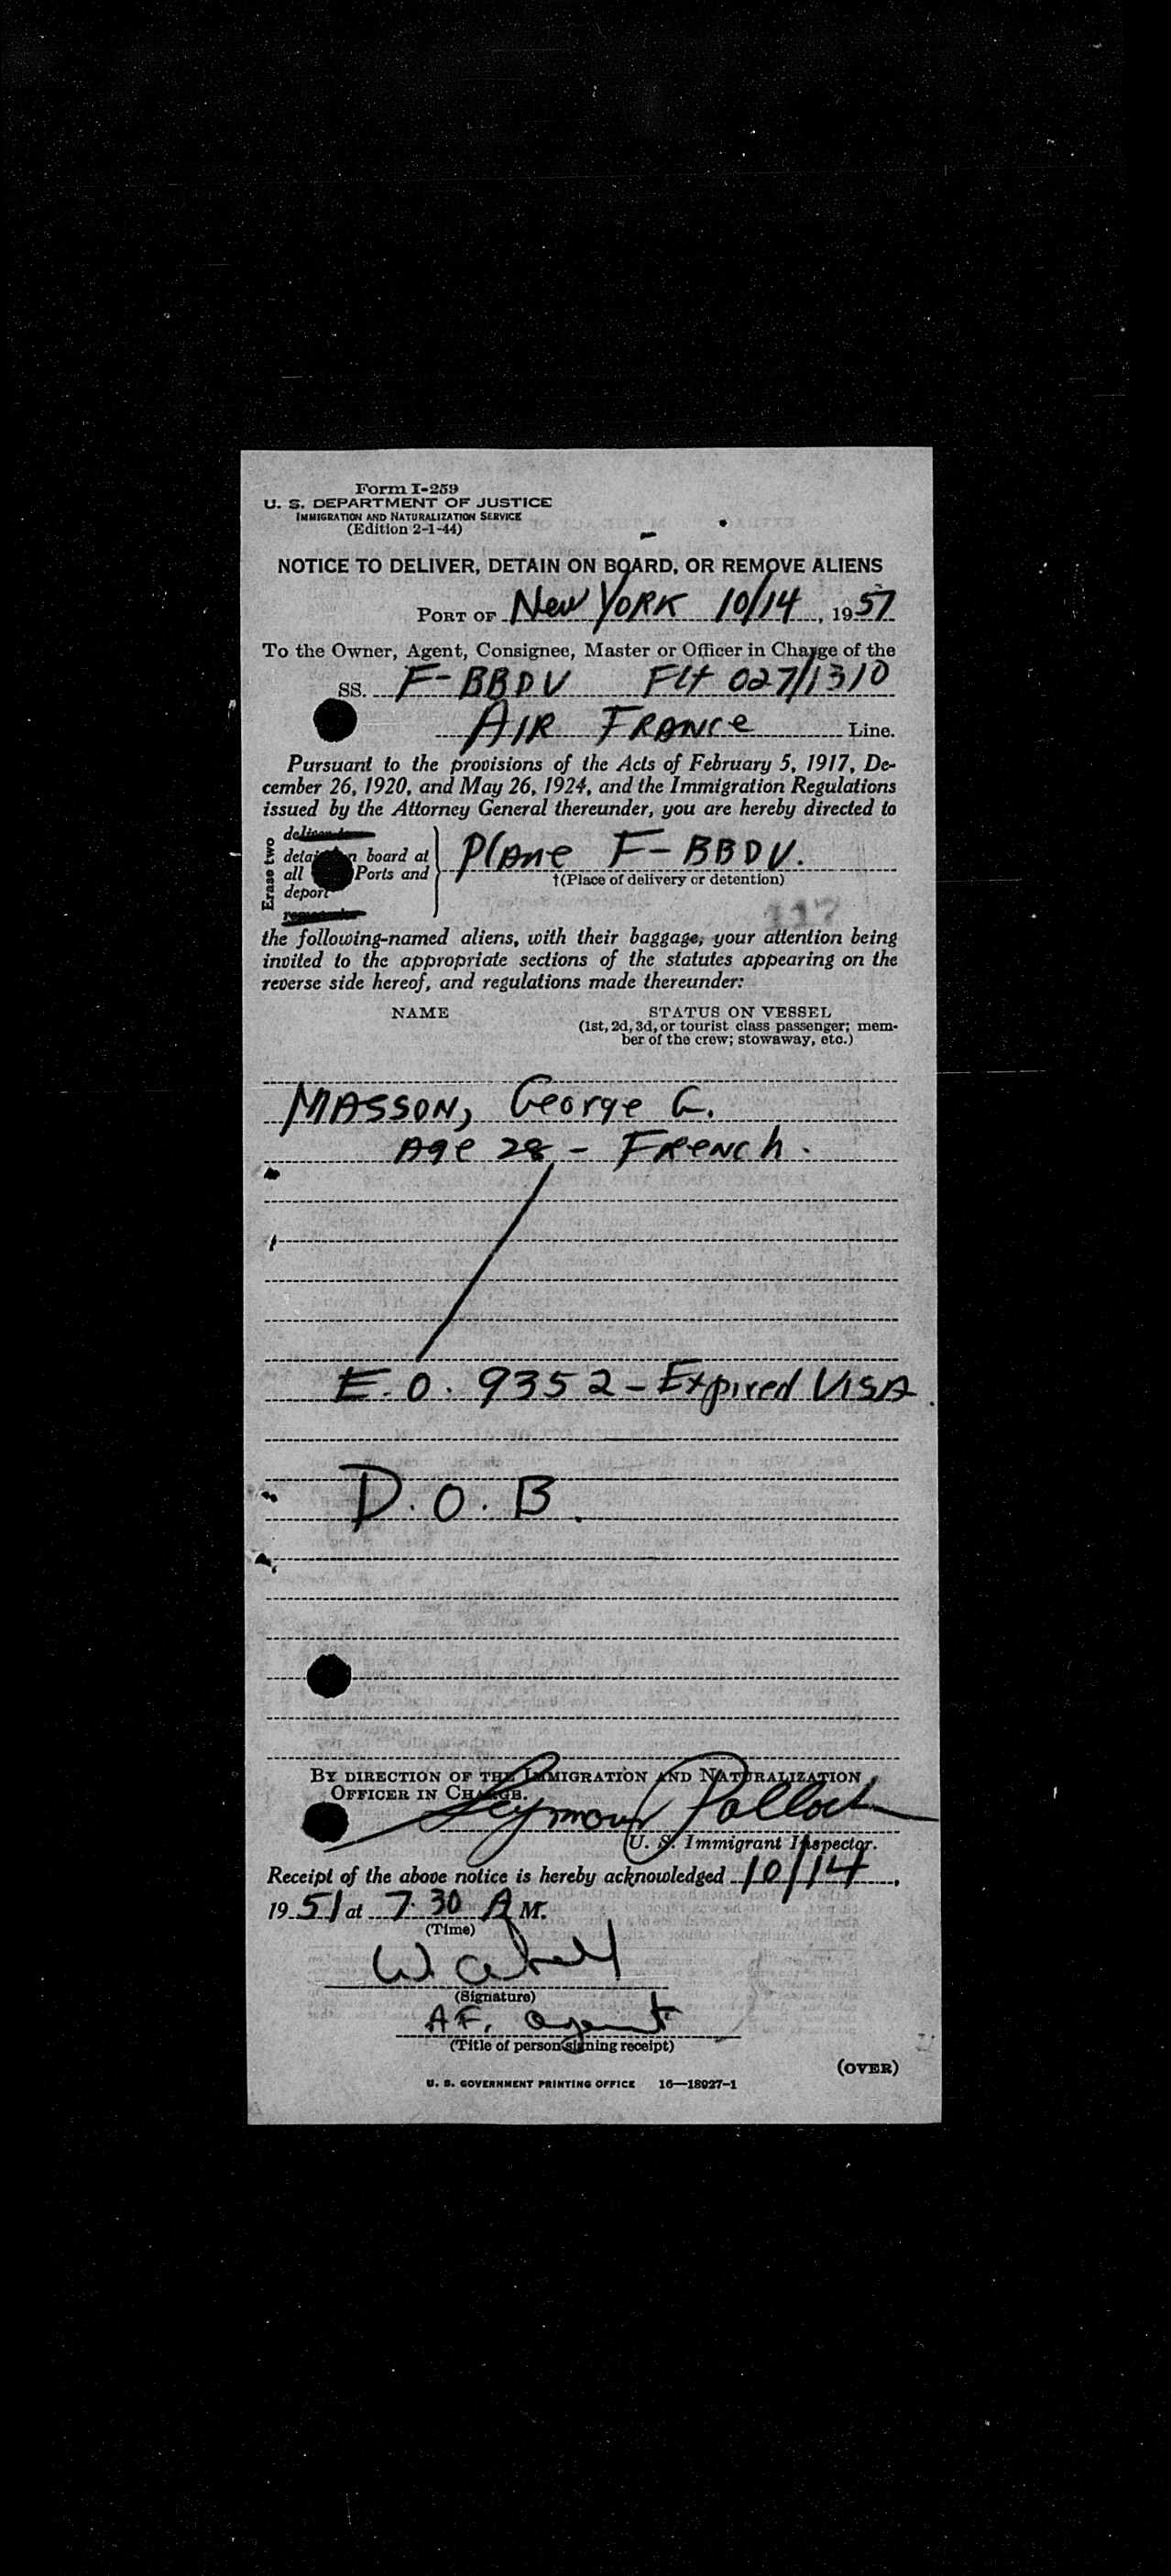 Form I-259
U. S. DEPARTMENT OF JUSTICE
IMMIGRATION AND NATURALIZATION SERVICE
(Edition 2-1-44)
NOTICE TO DELIVER, DETAIN ON BOARD, OR REMOVE ALIENS
PORT OF New YORK 10/14, 1951
To the Owner, Agent, Consignee, Master or Officer in Charge of the
SS. F-BBDV Flt 027/1310
AIR FRANCE Line.
Pursuant to the provisions of the Acts of February 5, 1917, De-
cember 26, 1920, and May 26, 1924, and the Immigration Regulations
issued by the Attorney General thereunder, you are hereby directed to
Erase two
board at
all Ports and
deport
Plane F-BBDV.
†(Place of delivery or detention)
117
the following-named aliens, with their baggage, your attention being
invited to the appropriate sections of the statutes appearing on the
reverse side hereof, and regulations made thereunder:
NAME STATUS ON VESSEL
(1st, 2d, 3d, or tourist class passenger; mem-
ber of the crew; stowaway, etc.)
MASSON, George G.
Age 28 - French.
E.O. 9352 - Expired VISA.
D.O.B.
BY DIRECTION OF THE IMMIGRATION AND NATURALIZATION
OFFICER IN CHARGE.
Seymour Pollock
U. S. Immigrant Inspector.
Receipt of the above notice is hereby acknowledged 10/14,
1951 at 7:30 A M.
(Time)
W.
(Signature)
AF. agent
(Title of person signing receipt)
(OVER)
U. S. GOVERNMENT PRINTING OFFICE 16—18927-1